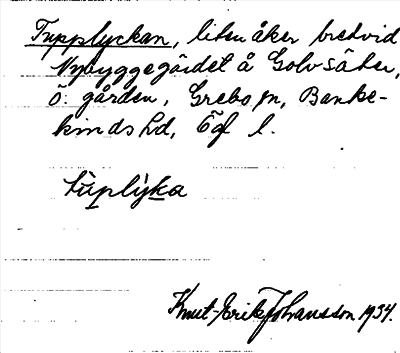 Tupplyckan, liten åker bredvid
Nybyggegärdet å Golvsäter,
Ö. gården, Grebo sn, Banke-
kinds hd, Ög l.
tùplỳka
Knut-Erik Johansson 1934.